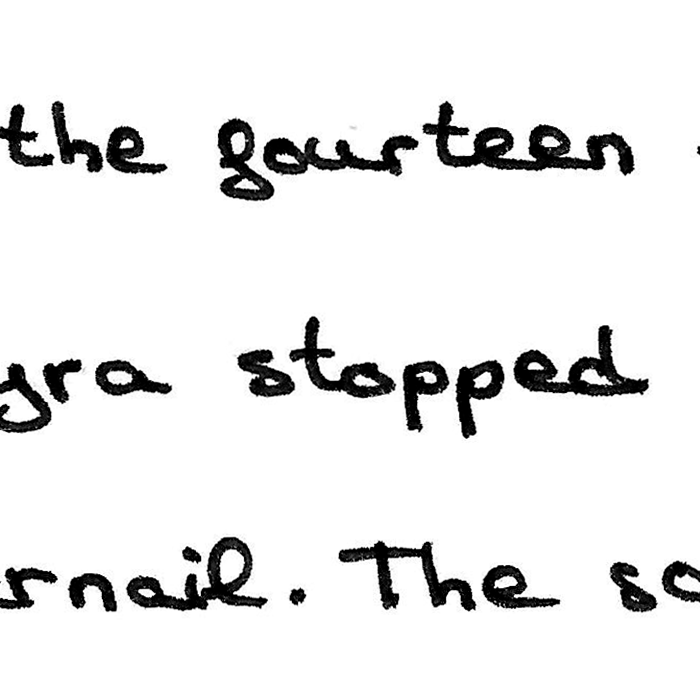 the fourteen
yra stopped
rnail. The so